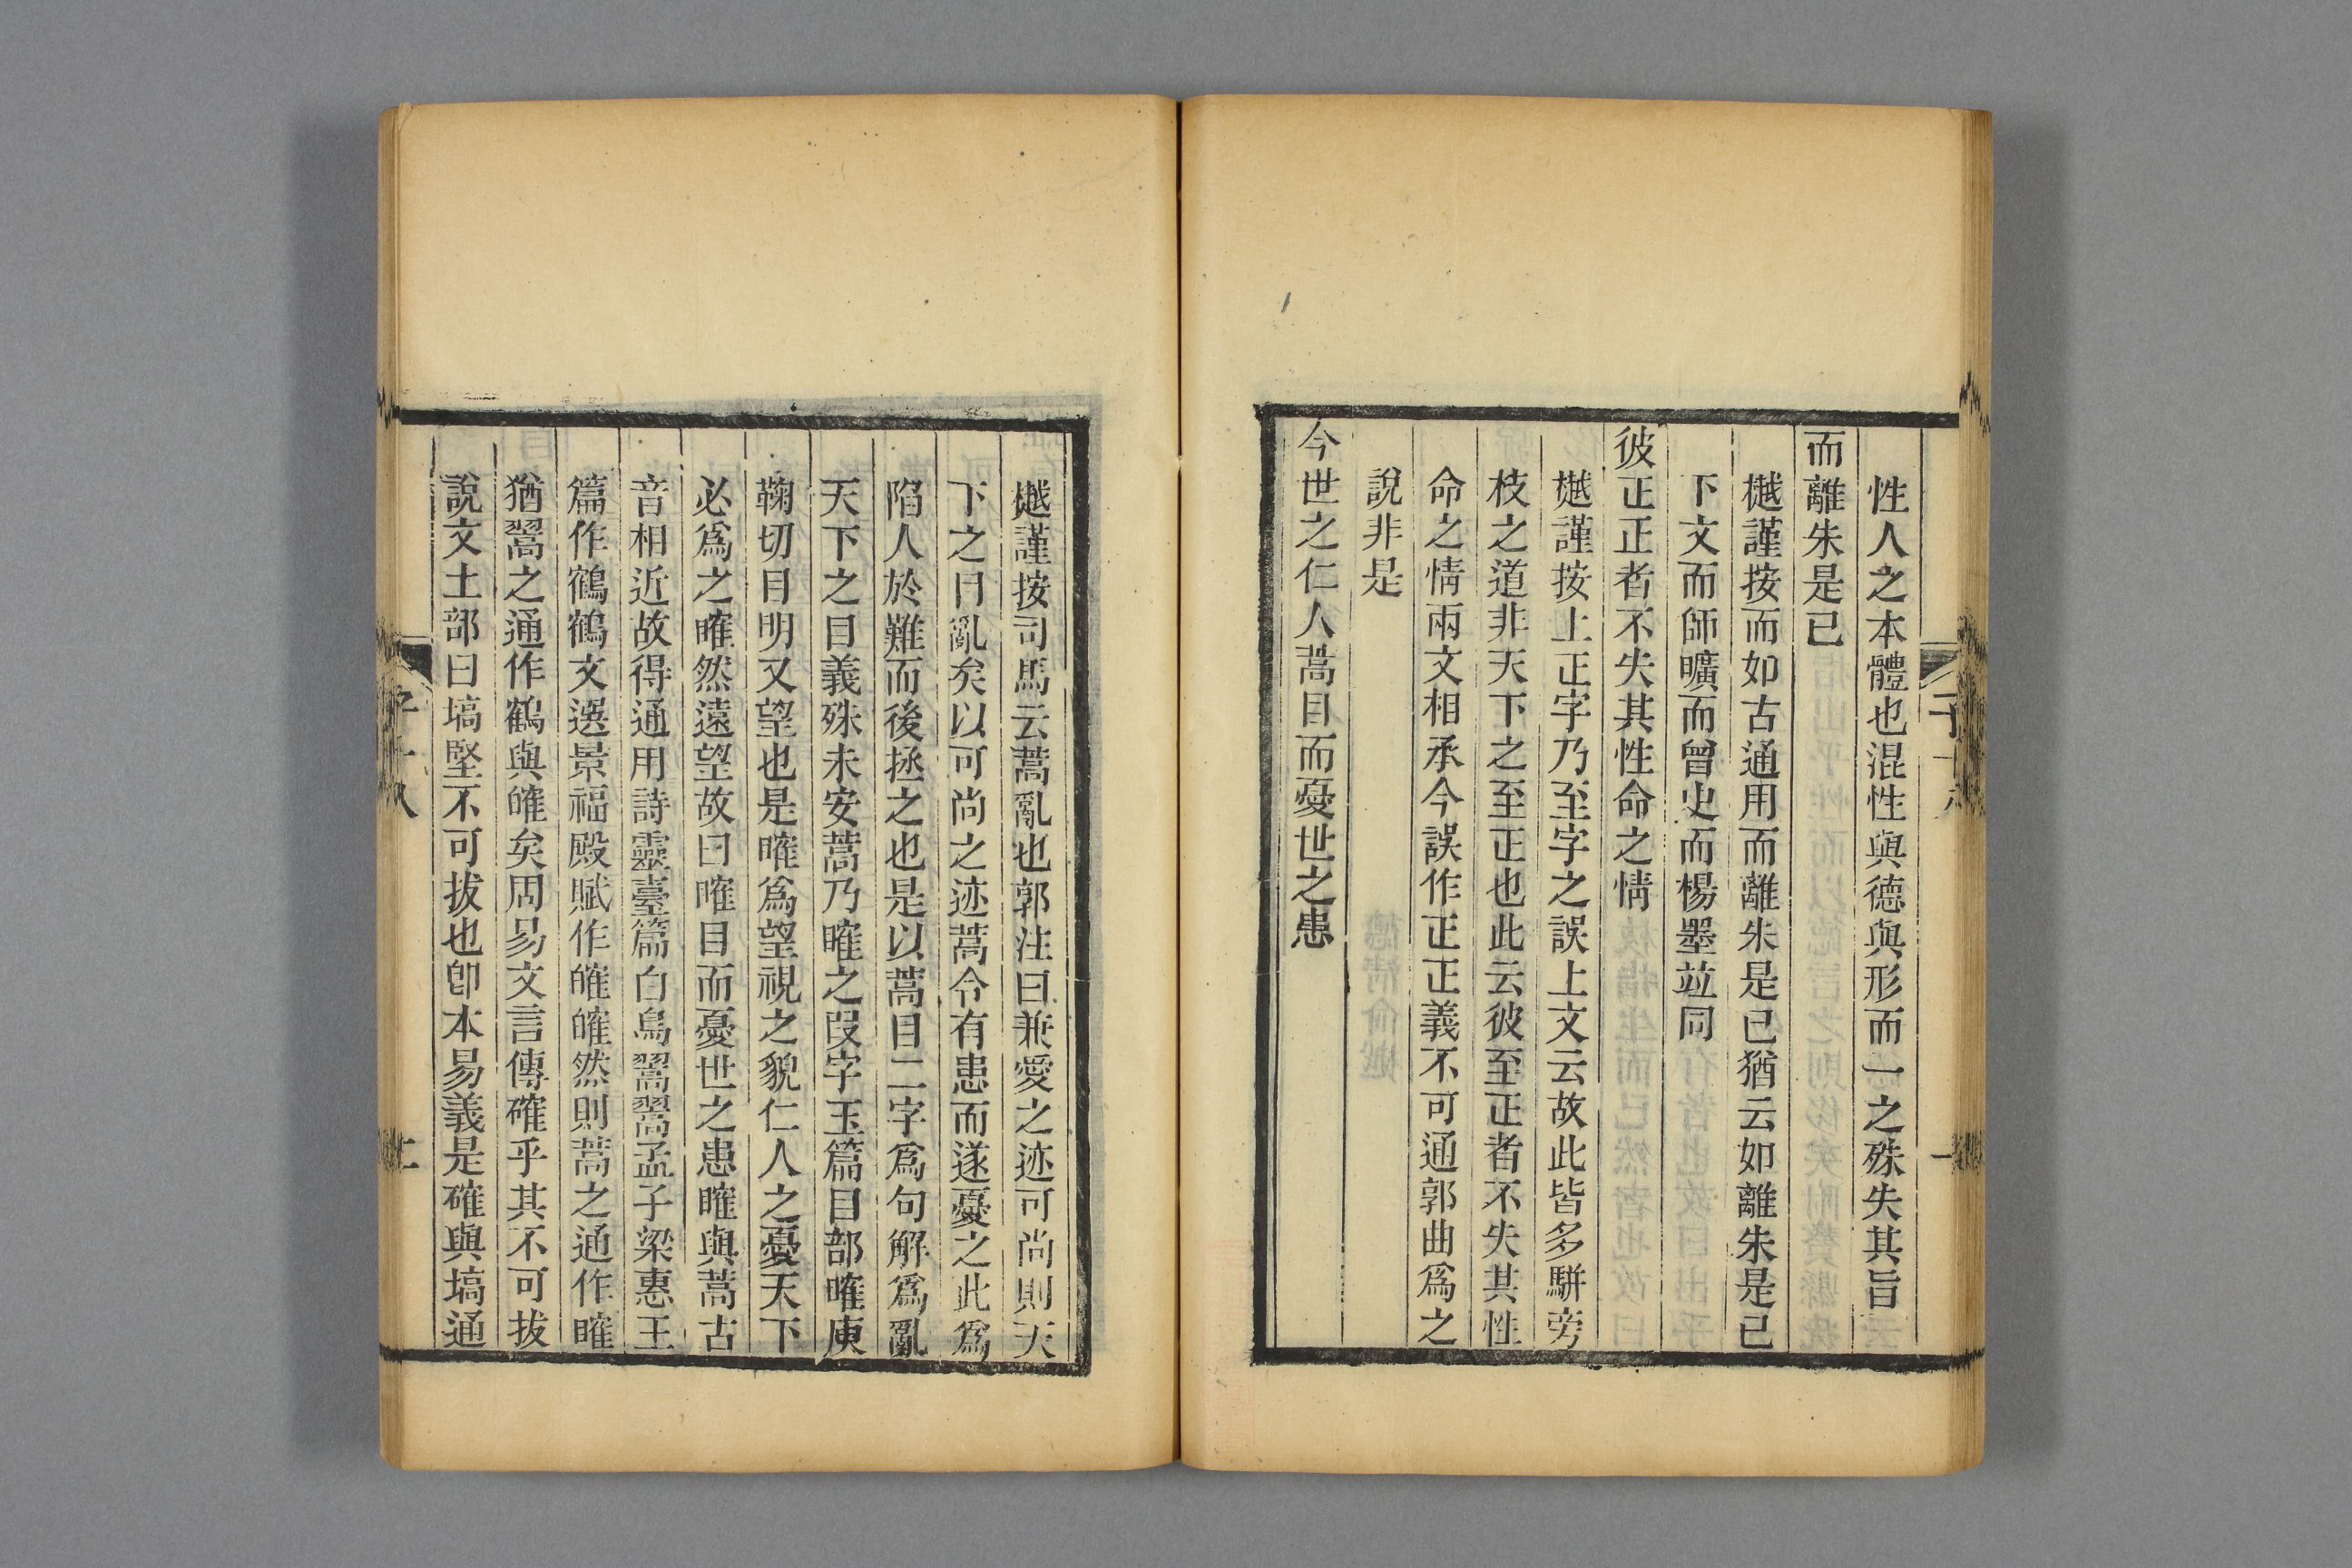 性人之本體也混性與德與形而一之殊失其旨
而離朱是已
樾謹按而如古通用而離朱是已猶云如離朱是已
下文而師曠而曾史而楊墨竝同
彼正正者不失其性命之情
樾謹按上正字乃至字之誤上文云故此皆多駢旁
枝之道非天下之至正也此云彼至正者不失其性
命之情兩文相承今誤作正正義不可通郭曲爲之
說非是
今世之仁人蒿目而憂世之患
樾謹按司馬云蒿亂也郭注曰兼愛之迹可尚則天
下之目亂矣以可尚之迹蒿令有患而遂憂之此爲
陷人於難而後拯之也是以蒿目二字爲句解爲亂
天下之目義殊未安蒿乃睢之叚字玉篇目部睢庾
鞠切目明又望也是睢爲望視之貌仁人之憂天下
必爲之睢然遠望故曰睢目而憂世之患睢與蒿古
音相近故得通用詩靈臺篇白鳥翯翯孟子梁惠王
篇作鶴鶴文選景福殿賦作皠皠然則蒿之通作睢
猶翯之通作鶴與皠矣周易文言傳確乎其不可拔
說文土部曰塙堅不可拔也卽本易義是確與塙通
子十八